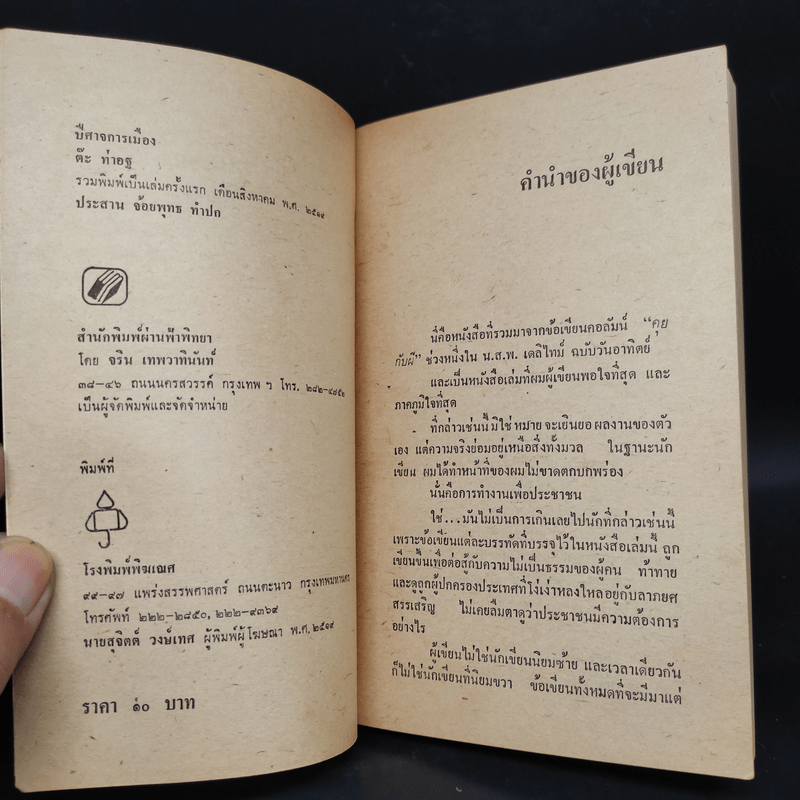 ปีศาจการเมือง
ต๊ะ ท่าอฐ
รวมพิมพ์เป็นเล่มครั้งแรก เดือนสิงหาคม พ.ศ. ๒๕๑๙
ประสาน จ้อยพุทธ ทำปก
สำนักพิมพ์ผ่านฟ้าพิทยา
โดย จริน เทพวาทินันท์
๓๘-๔๖ ถนนนครสวรรค์ กรุงเทพ ฯ โทร. ๒๘๒-๔๗๕๒
เป็นผู้จัดพิมพ์และจัดจำหน่าย
พิมพ์ที่
โรงพิมพ์พิฆเณศ
๙๙-๙๗ แพร่งสรรพศาสตร์ ถนนตะนาว กรุงเทพมหานคร
โทรศัพท์ ๒๒๒-๒๘๕๐, ๒๒๒-๙๓๖๙
นายสุจิตต์ วงษ์เทศ ผู้พิมพ์ผู้โฆษณา พ.ศ. ๒๕๑๙
ราคา ๑๐ บาท
คำนำของผู้เขียน
นี่คือหนังสือที่รวมมาจากข้อเขียนคอลัมน์ "คุย
กับผี" ช่วงหนึ่งใน น.ส.พ. เดลิไทม์ ฉบับวันอาทิตย์
และเป็นหนังสือเล่มที่ผมผู้เขียนพอใจที่สุด และ
ภาคภูมิใจที่สุด
ที่กล่าวเช่นนี้ มิใช่หมายจะเยินยอผลงานของตัว
เอง แต่ความจริงย่อมอยู่เหนือสิ่งทั้งมวล ในฐานะนัก
เขียน ผมได้ทำหน้าที่ของผมไม่ขาดตกบกพร่อง
นั่นคือการทำงานเพื่อประชาชน
ใช่...มันไม่เป็นการเกินเลยไปนักที่กล่าวเช่นนี้
เพราะข้อเขียนแต่ละบรรทัดที่บรรจุไว้ในหนังสือเล่มนี้ ถูก
เขียนขึ้นเพื่อต่อสู้กับความไม่เป็นธรรมของผู้คน ท้าทาย
และดูถูกผู้ปกครองประเทศที่โง่เง่าหลงใหลอยู่กับลาภยศ
สรรเสริญ ไม่เคยลืมตาดูว่าประชาชนมีความต้องการ
อย่างไร
ผู้เขียนไม่ใช่นักเขียนนิยมซ้าย และเวลาเดียวกัน
ก็ไม่ใช่นักเขียนที่นิยมขวา ข้อเขียนทั้งหมดที่จะมีมาแต่